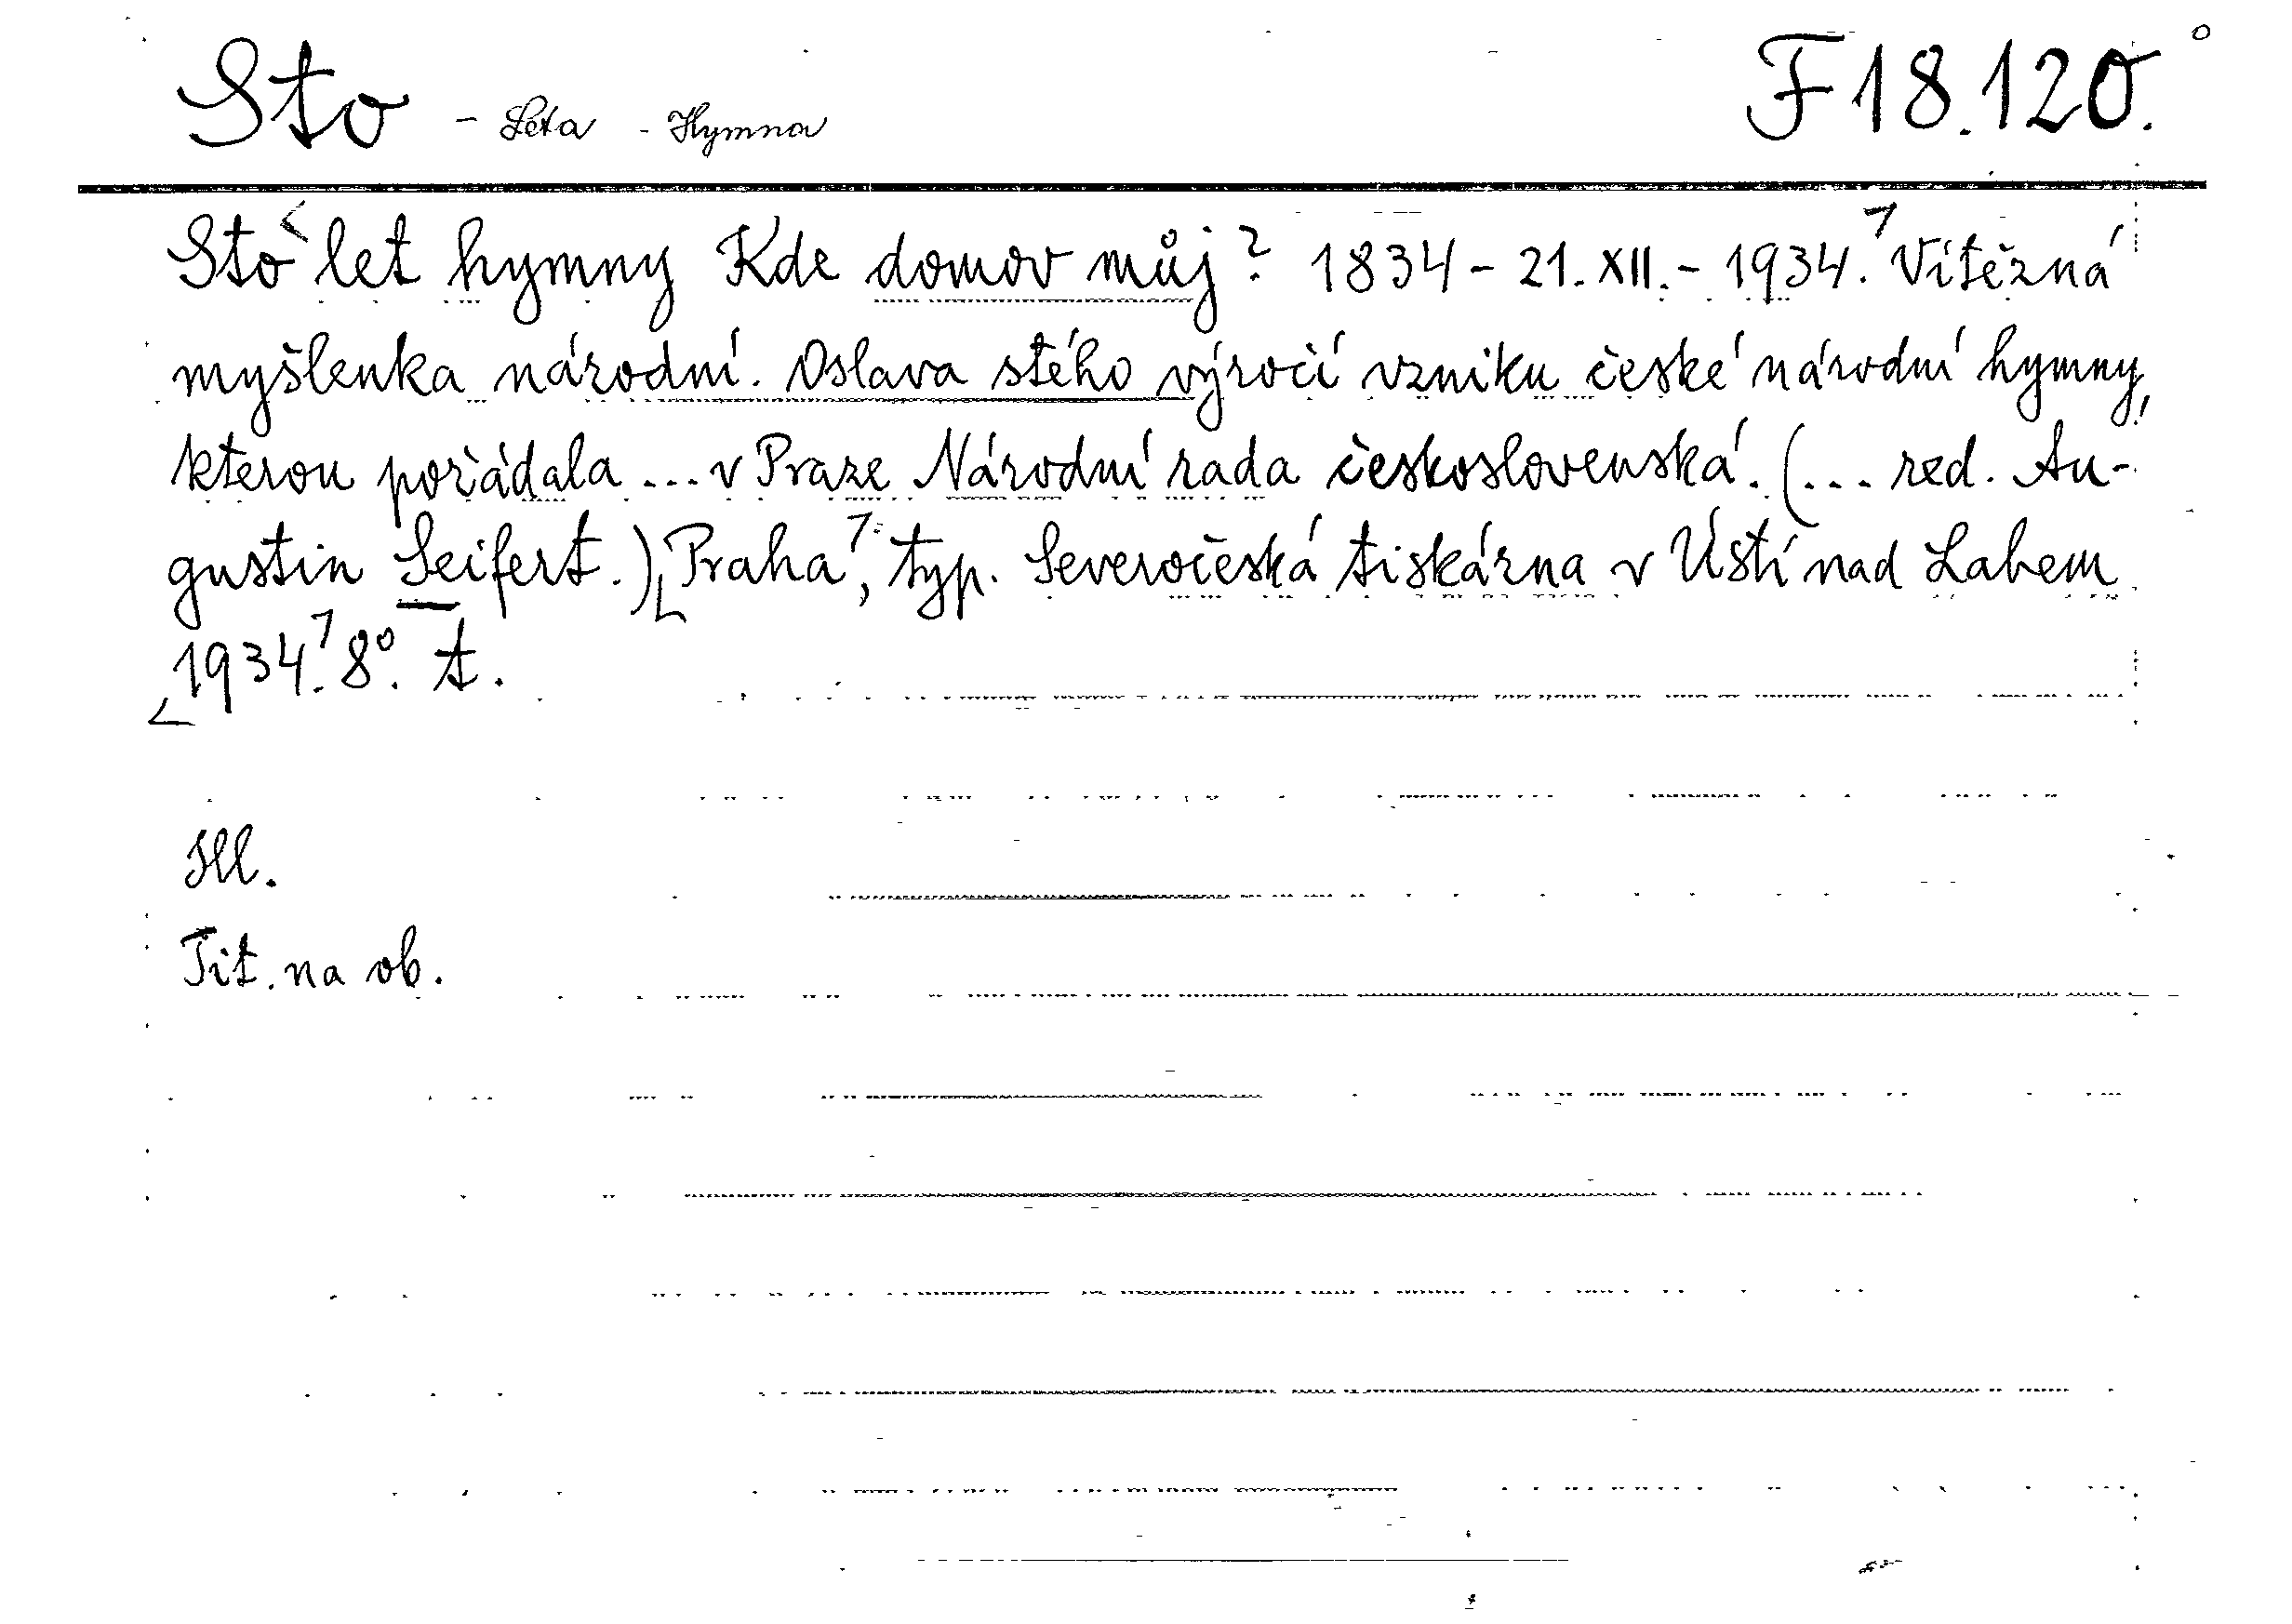 Sto - Léta - Hymna F 18.120.
Sto let hymny Kde domov můj? 1834 - 21. XII. - 1934. Vítězná
myšlenka národní. Oslava stého výročí vzniku české národní hymny,
kterou pořádala ... v Praze Národní rada československá. (... red. Au-
gustin Seifert.) Praha, typ. Severočeská tiskárna v Ústí nad Labem
1934. 8°. t.
Ill.
Tit. na ob.